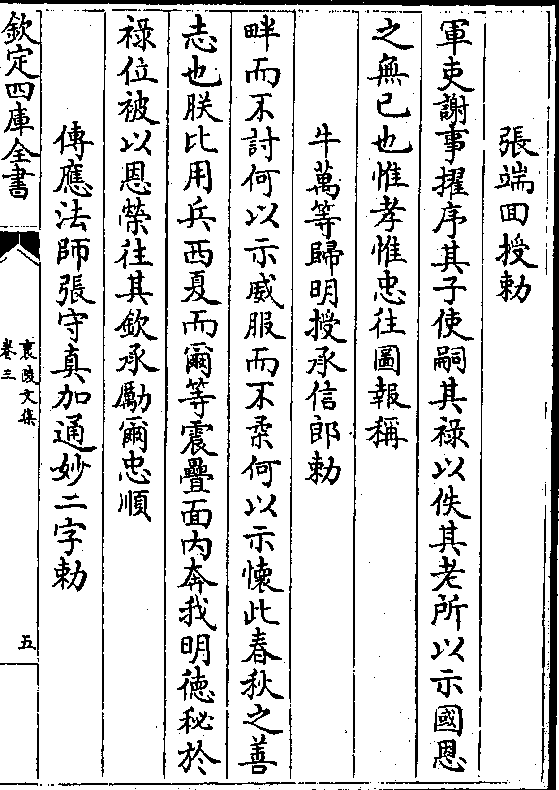 張端回授勅
軍吏謝事擢序其子使嗣其禄以佚其老所以示國恩
之無已也惟孝惟忠往圖報稱
牛萬等歸明授承信郎勅
畔而不討何以示威服而不柔何以示懷此春秋之善
志也朕比用兵西夏而爾等震疊面内奔我明德秘於
禄位被以恩榮往其欽承勵爾忠順
傳應法師張守真加通妙二字勅
欽定四庫全書
襄陵文集
卷三
五